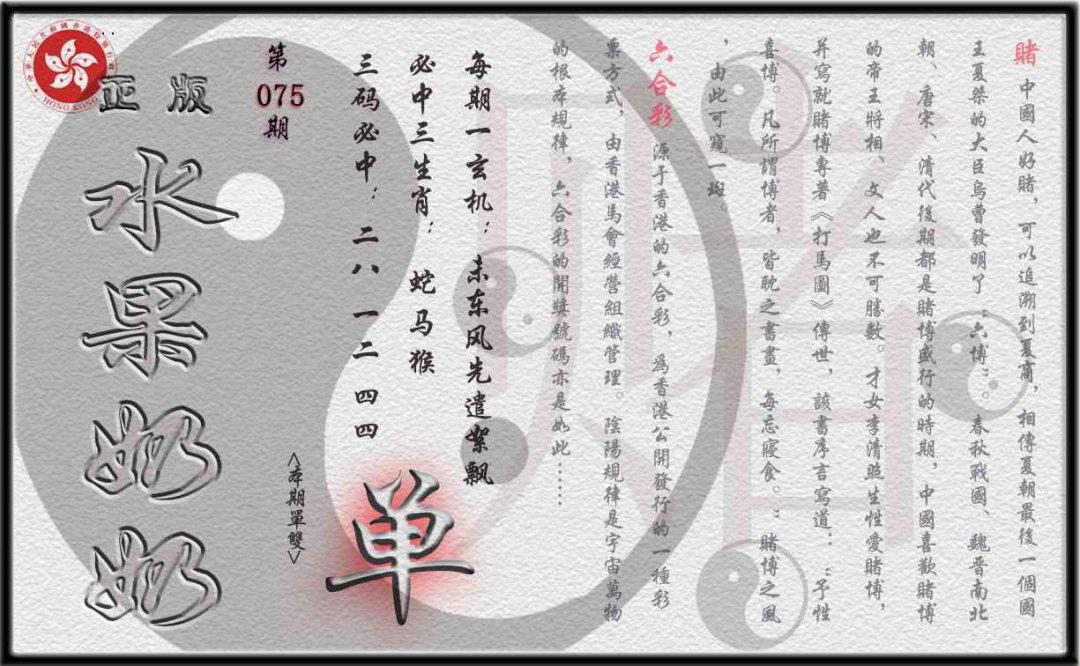 賭 中國人好賭，可以追溯到夏商，相傳夏朝最後一個國
王夏桀的大臣烏曹發明了“六博”。春秋戰國、魏晉南北
朝、唐宋、清代後期都是賭博盛行的時期，中國喜歡賭博
的帝王將相、文人也不可勝數。才女李清照生性愛賭博，
并寫就賭博專著《打馬圖》傳世，該書序言寫道：“予性
喜博。凡所謂博者，皆耽之書畫，每忘寢食。”賭博之風
，由此可窺一斑。
六合彩 源于香港的六合彩，為香港公開發行的一種彩
票方式，由香港馬會經營組織管理。陰陽規律是宇宙萬物
的根本規律，六合彩的開獎號碼亦是如此……
每期一玄机：未东风先遣絮飘
必中三生肖：蛇马猴
三码必中：二八 一二 四四
第
075
期
<本期單雙>
单
正版
水果奶奶
HONG KONG